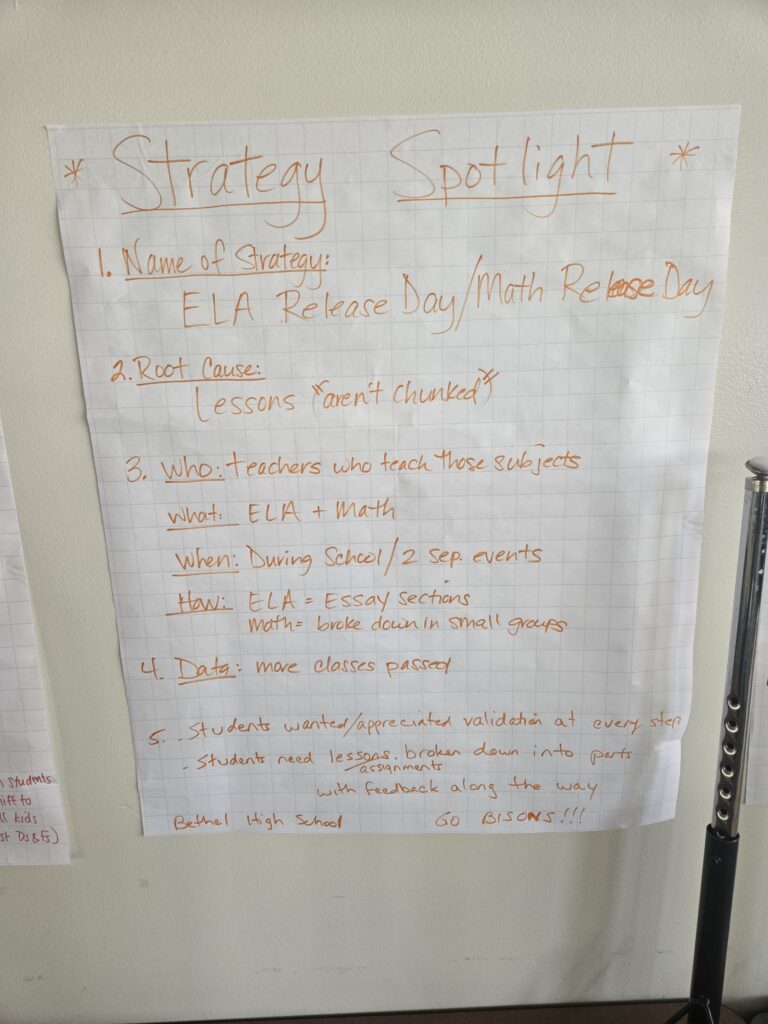 * Strategy Spotlight *
1. Name of Strategy:
ELA Release Day/Math Release Day
2. Root Cause:
Lessons "aren't chunked"
3. Who: teachers who teach those subjects
What: ELA + Math
When: During School/2 sep. events
How: ELA = Essay sections
math = broke down in small groups
4. Data: more classes passed
5. - Students wanted/appreciated validation at every step
- Students need lessons/assignments broken down into parts
with feedback along the way
Bethel High School GO BISONS!!!
students
ift to
ll kids
st Ds & Fs)